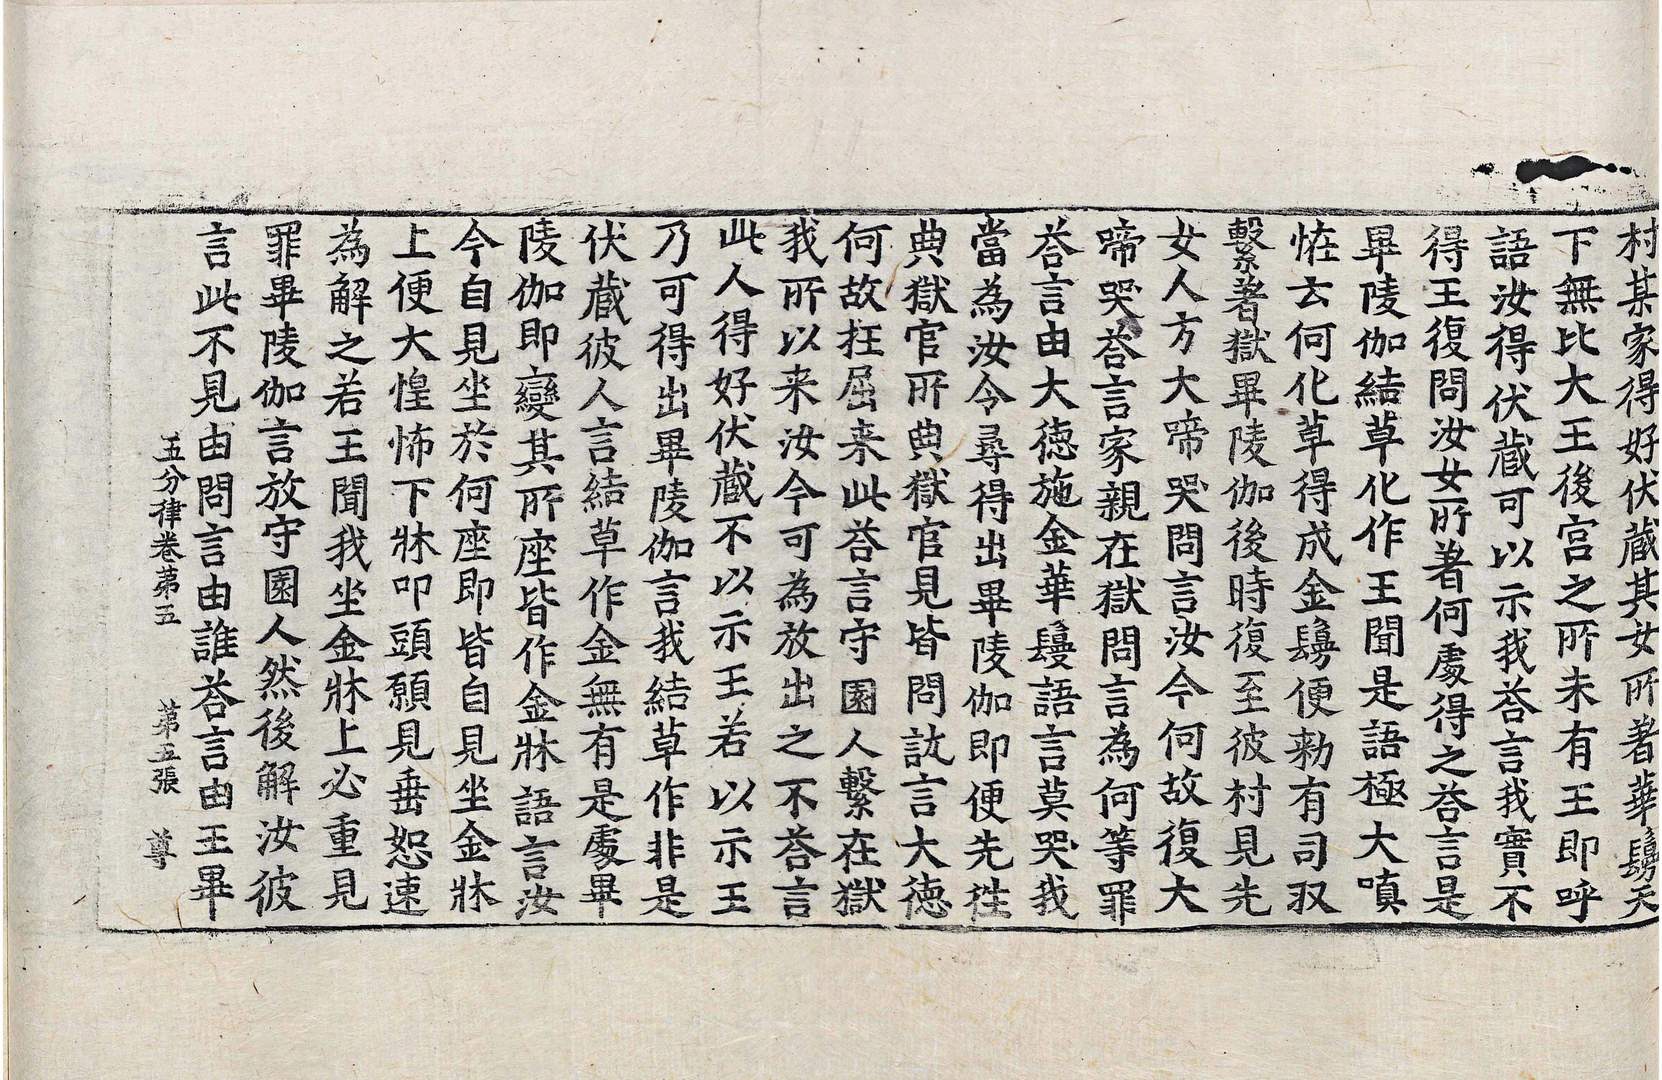 村某家得好伏蔵其女所著華鬘天
下無比大王後宮之所未有王即呼
語汝得伏蔵可以示我荅言我實不
得王復問汝女所著何處得之荅言是
畢陵伽結草化作王聞是語極大嗔
恠云何化草得成金鬘便勑有司収
繫著獄畢陵伽後時復至彼村見先
女人方大啼哭問言汝今何故復大
啼哭荅言家親在獄問言為何等罪
荅言由大徳施金華鬘語言莫哭我
當為汝令尋得出畢陵伽即便先往
典獄官所典獄官見皆問訊言大徳
何故抂屈来此荅言守園人繫在獄
我所以来汝今可為放出之不荅言
此人得好伏蔵不以示王若以示王
乃可得出畢陵伽言我結草作非是
伏蔵彼人言結草作金無有是處畢
陵伽即變其所座皆作金牀語言汝
今自見坐於何座即皆自見坐金牀
上便大惶怖下牀叩頭願見垂恕速
為解之若王聞我坐金牀上必重見
罪畢陵伽言放守園人然後解汝彼
言此不見由問言由誰荅言由王畢
五分律卷苐五 苐五張 尊